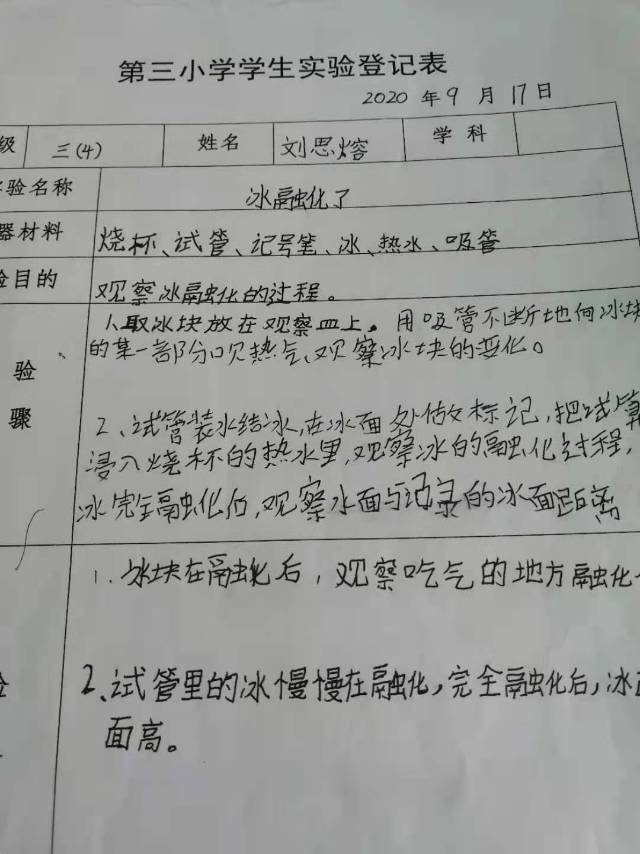 第三小学学生实验登记表
2020 年 9 月 17 日
级 三(4) 姓名 刘思熔 学科
验名称 冰融化了
器材料 烧杯、试管、记号笔、冰、热水、吸管
验目的 观察冰融化的过程。
1、取冰块放在观察皿上。用吸管不断地向冰块
的某一部分吹热气、观察冰块的变化。
验
骤
2、试管装水结冰,在冰面处做标记,把试管
浸入烧杯的热水里,观察冰的融化过程,
冰完全融化后,观察水面与记录的冰面距离
1.冰块在融化后,观察吃气的地方融化
2、试管里的冰慢慢在融化,完全融化后,冰
面高。